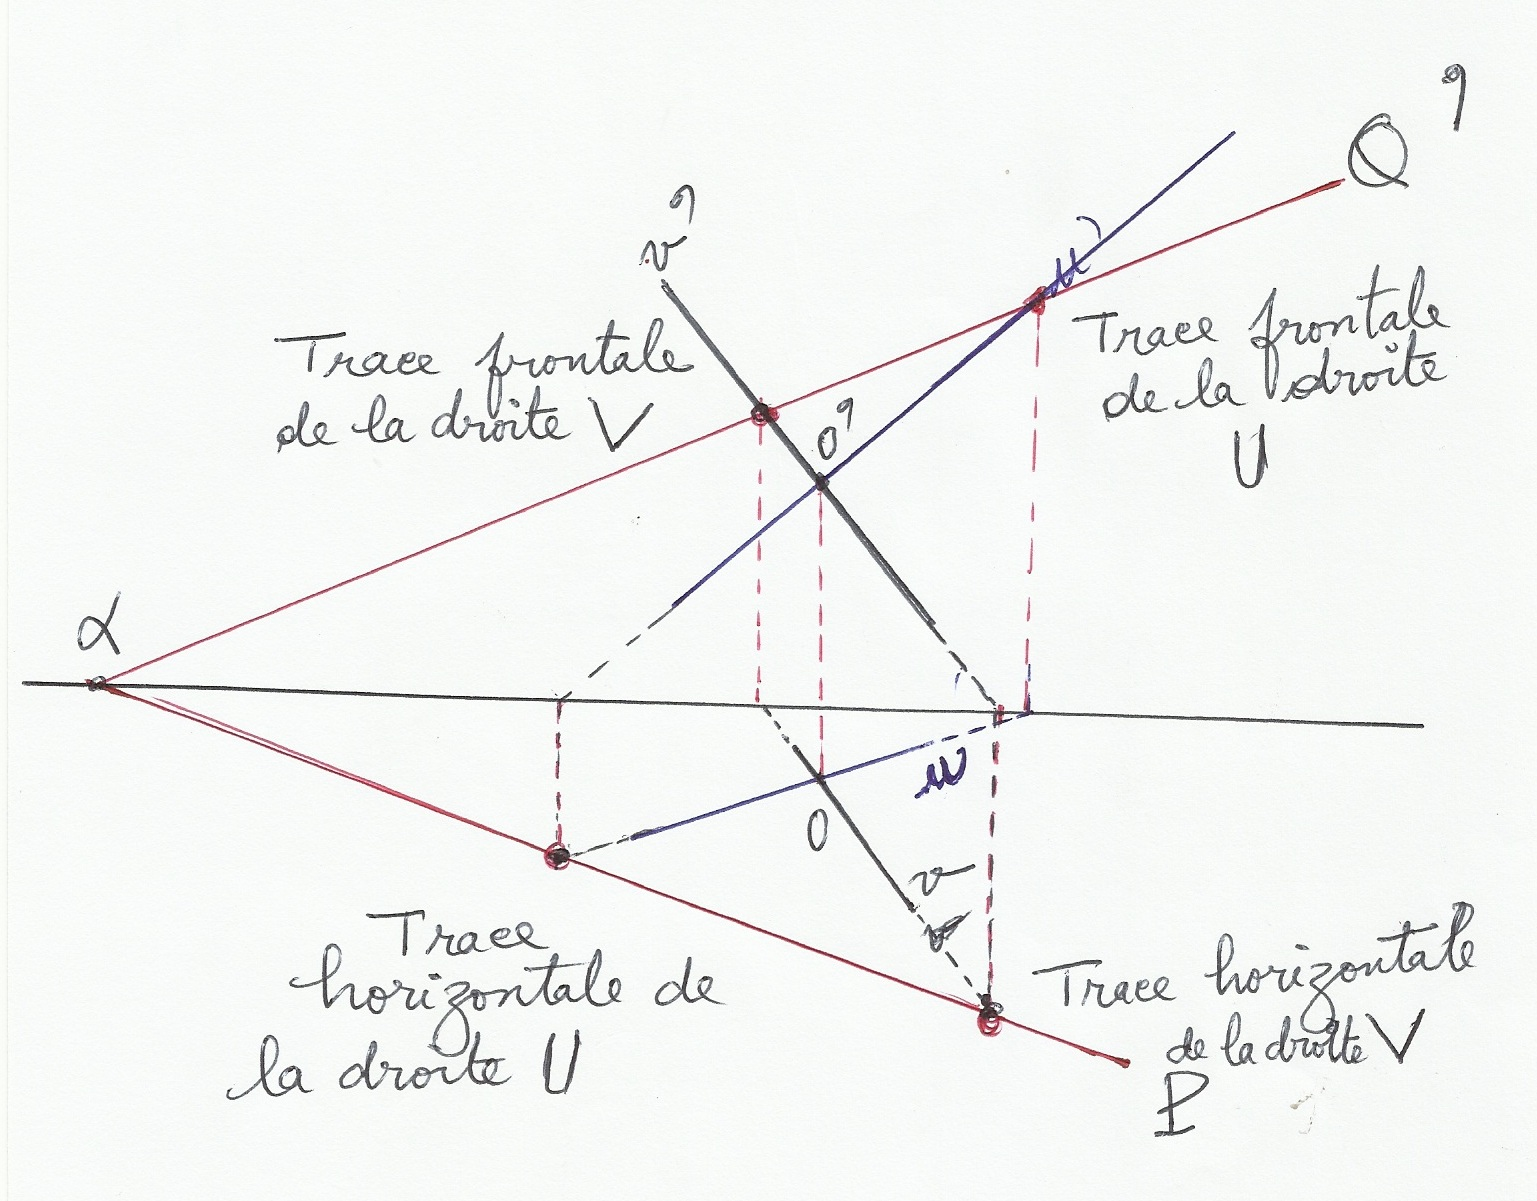 Q'
v'
u'
Trace frontale
de la droite V
Trace frontale
de la droite
U
O'
α
u
O
v
v
Trace
horizontale de
la droite U
Trace horizontale
de la droite V
P